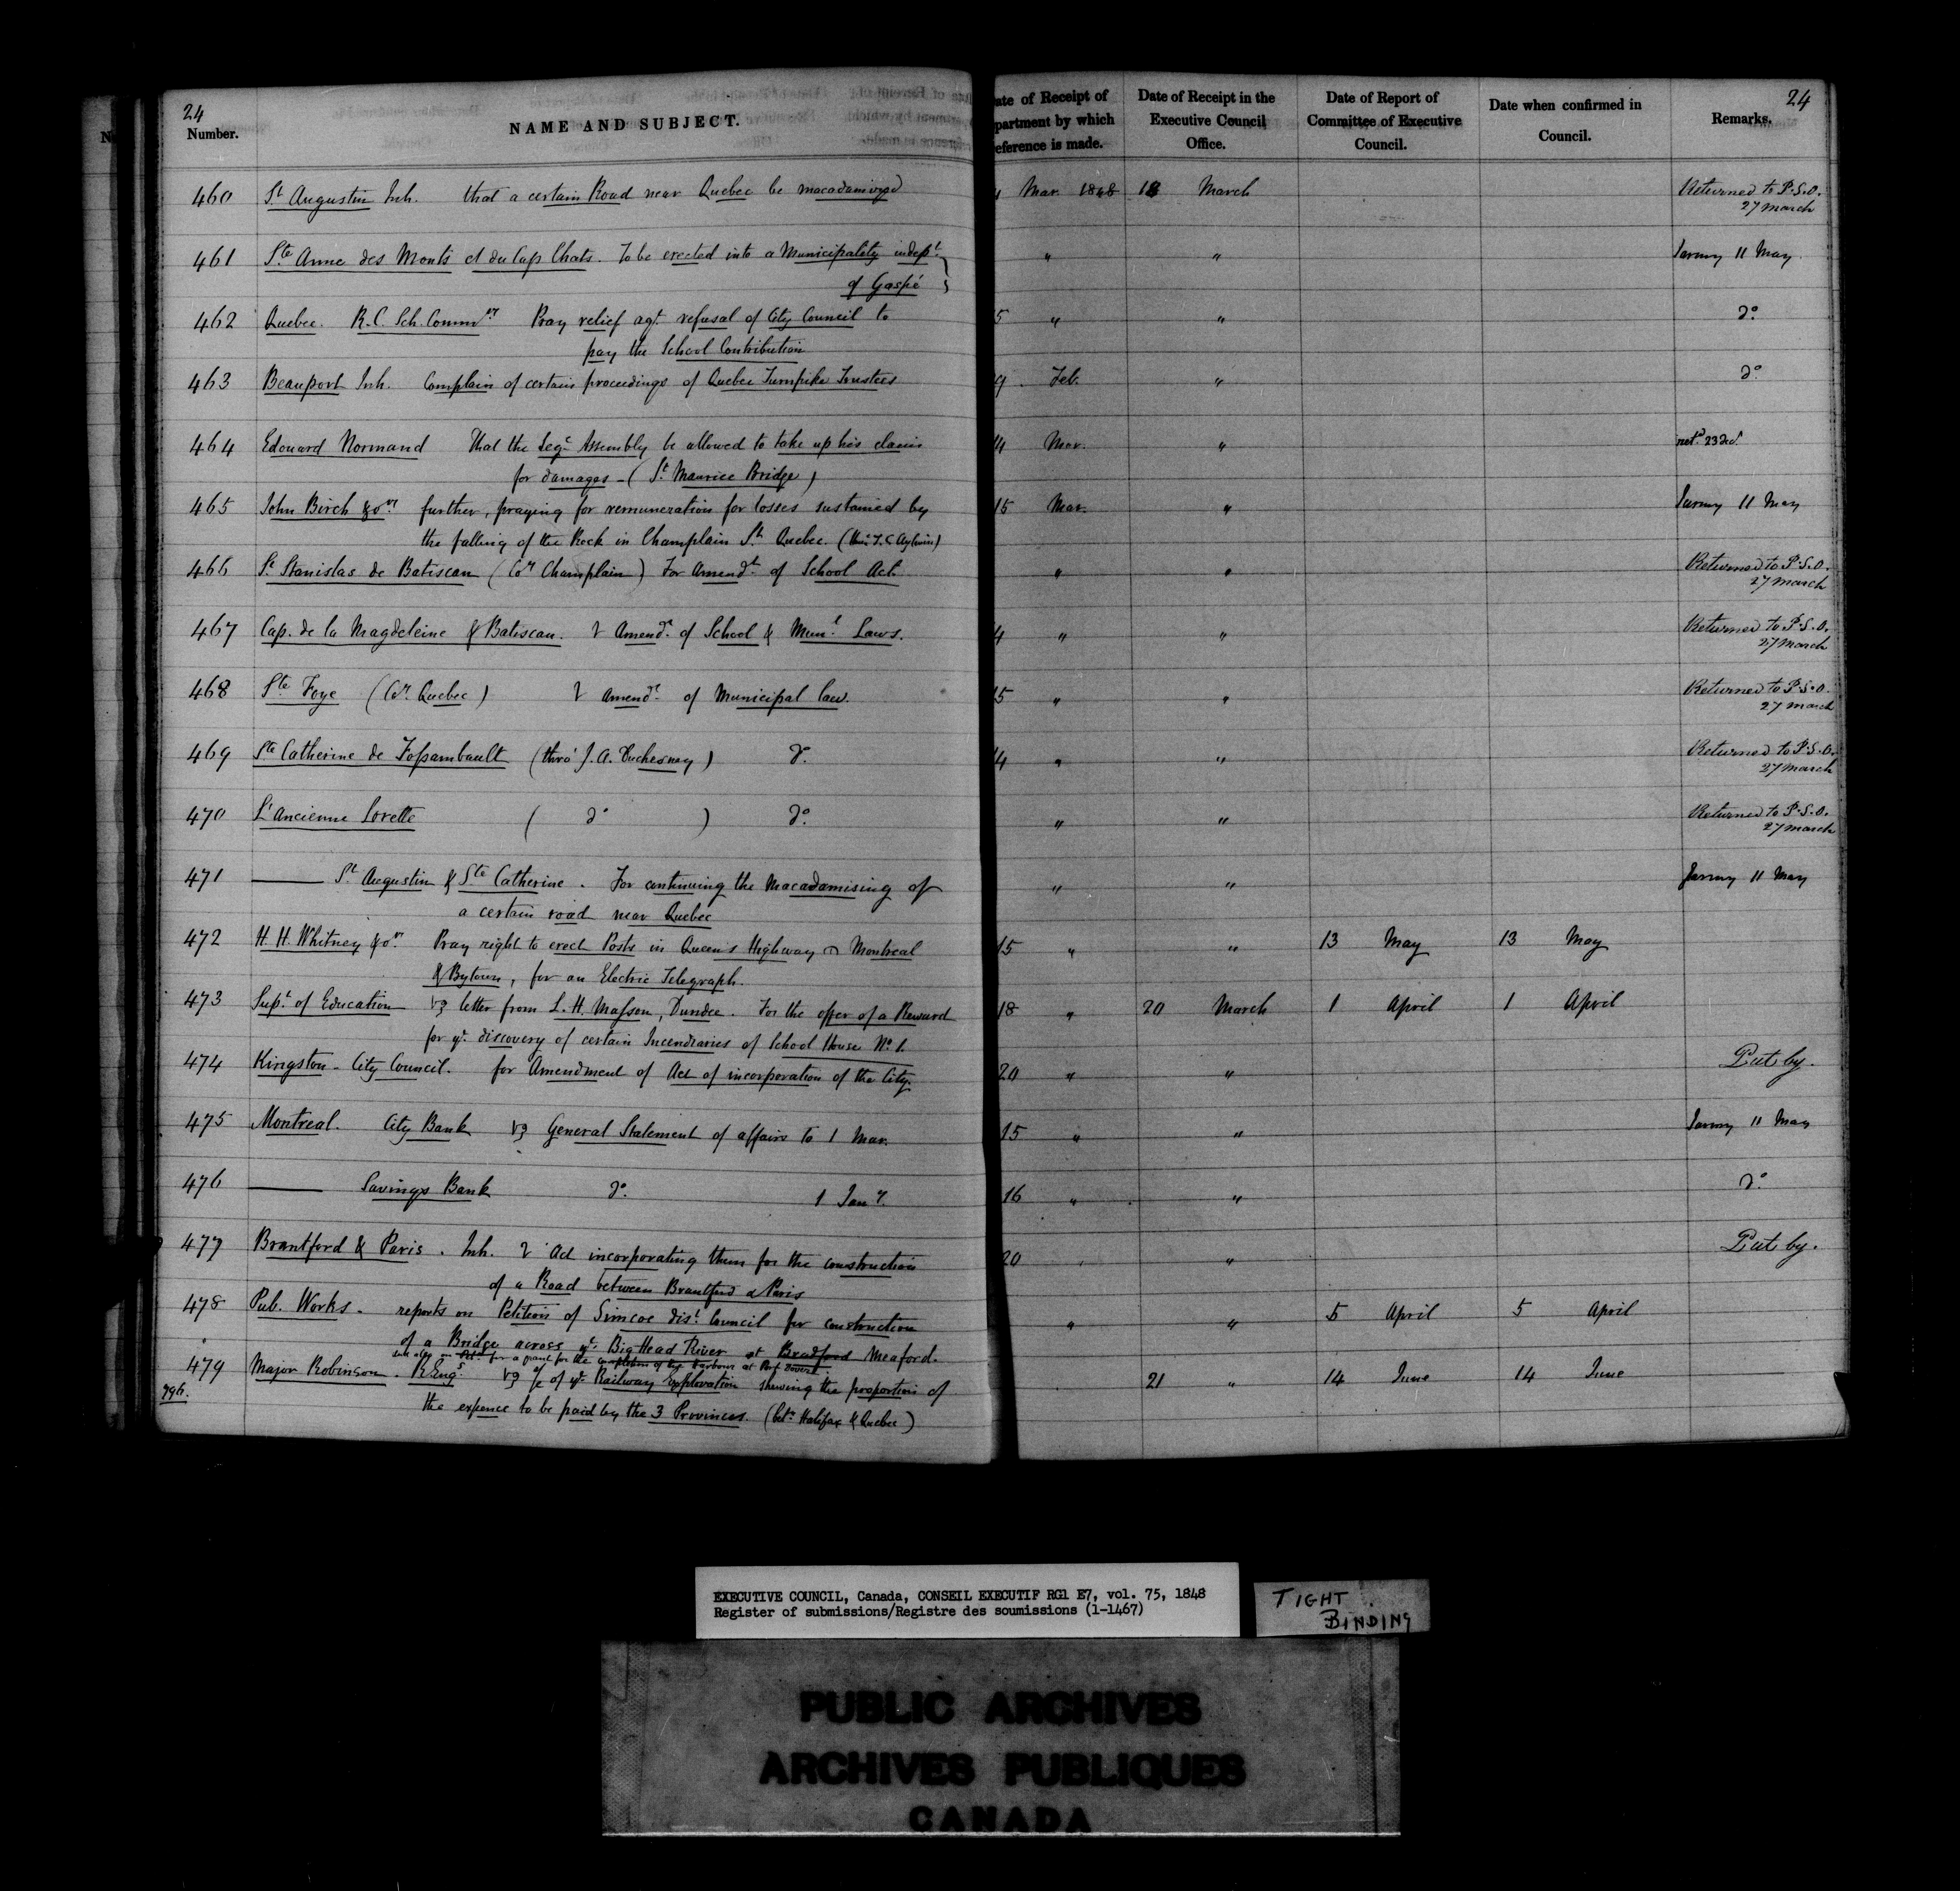 24
Number.
NAME AND SUBJECT.
ate of Receipt of
partment by which
eference is made.
Date of Receipt in the
Executive Council
Office.
Date of Report of
Committee of Executive
Council.
Date when confirmed in
Council.
24
Remarks.
460 St Augustin Inh. that a certain Road near Quebec be macadamized Mar. 1848 18 March Returned to P.S.O.
27 March
461 Ste Anne des Monts et du Cap Chats. To be erected into a Municipality indept. " " 11 May
of Gaspé
462 Quebec. R.C. Sch. Commrs Pray relief agt. refusal of City Council to 5 " " do
pay the School Contribution
463 Beauport Inh. Complain of certain proceedings of Quebec Turnpike Trustees 9 Feb. " do
464 Edouard Normand That the Legve Assembly be allowed to take up his claim 4 Mar. " 23
for damages - (St Maurice Bridge)
465 John Birch & ors further, praying for remuneration for losses sustained by 15 Mar. " 11 May
the falling of the Rock in Champlain St. Quebec. (thro' T.C. Aylwin)
466 St Stanislas de Batiscan (Coy Champlain) For Amendt. of School Act. " " Returned to P.S.O.
27 March
467 Cap. de la Magdeleine & Batiscan. Amendt. of School & Munl. Laws. 4 " " Returned to P.S.O.
27 March
468 Ste Foye (Coy. Quebec) Amendt. of Municipal law. 15 " " Returned to P.S.O.
27 March
469 Ste Catherine de Fossambault (thro' J.A. Duchesnay) do. 14 " " Returned to P.S.O.
27 March
470 L'Ancienne Lorette ( do ) do. " " Returned to P.S.O.
27 March
471 —— St Augustin & Ste Catherine. For continuing the Macadamising of " " 11 May
a certain road near Quebec
472 H. H. Whitney & ors. Pray right to erect Posts in Queen's Highway Montreal 15 " " 13 May 13 May
& Bytown, for an Electric Telegraph.
473 Supt. of Education letter from L. H. Masson, Dundee. For the offer of a Reward 18 " 20 March 1 April 1 April
for ye. discovery of certain Incendiaries of School House No 1.
474 Kingston - City Council. for Amendment of Act of incorporation of the City. 20 " " Put by.
475 Montreal. City Bank General Statement of affairs to 1 Mar. 15 " " 11 May
476 —— Savings Bank do. 1 Jany. 16 " " do
477 Brantford & Paris. Inh. Act incorporating them for the construction 20 " Put by.
of a Road between Brantford & Paris
478 Pub. Works - reports on Petition of Simcoe dist. Council for construction " " 5 April 5 April
of a Bridge across ye. Big Head River at Bradford Meaford.
for a grant for the completion of the harbour at Port Dover
479 Major Robinson. R. Engs. of ye. Railway Exploration shewing the proportion of 21 " 14 June 14 June
796.
the expence to be paid by the 3 Provinces. (betn Halifax & Quebec)
EXECUTIVE COUNCIL, Canada, CONSEIL EXECUTIF RG1 E7, vol. 75, 1848
Register of submissions/Registre des soumissions (1-1467)
TIGHT
BINDING
PUBLIC ARCHIVES
ARCHIVES PUBLIQUES
CANADA